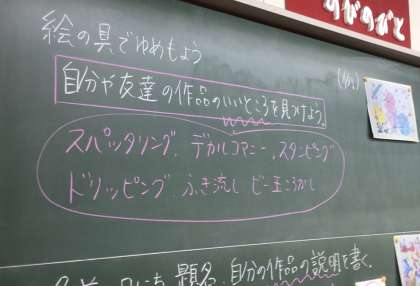 のびのびと
絵の具でゆめもよう
(例)
自分や友達の作品のいいところを見つけよう。
スパッタリング、デカルコマニー、スタンピング
ドリッピング、ふき流し ビー玉ころがし
題名、自分の作品の説明を書く。